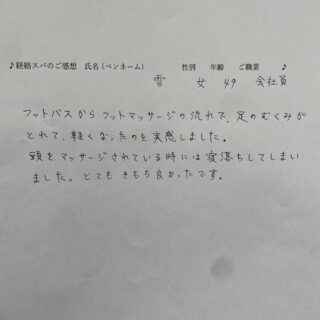 ♪経絡スパのご感想 氏名(ペンネーム) 性別 年齢 ご職業 ♪
雪 女 49 会社員
フットバスからフットマッサージの流れで、足のむくみが
とれて、軽くなったのを実感しました。
頭をマッサージされている時には寝落ちしてしまい
ました。とてもきもち良かったです。